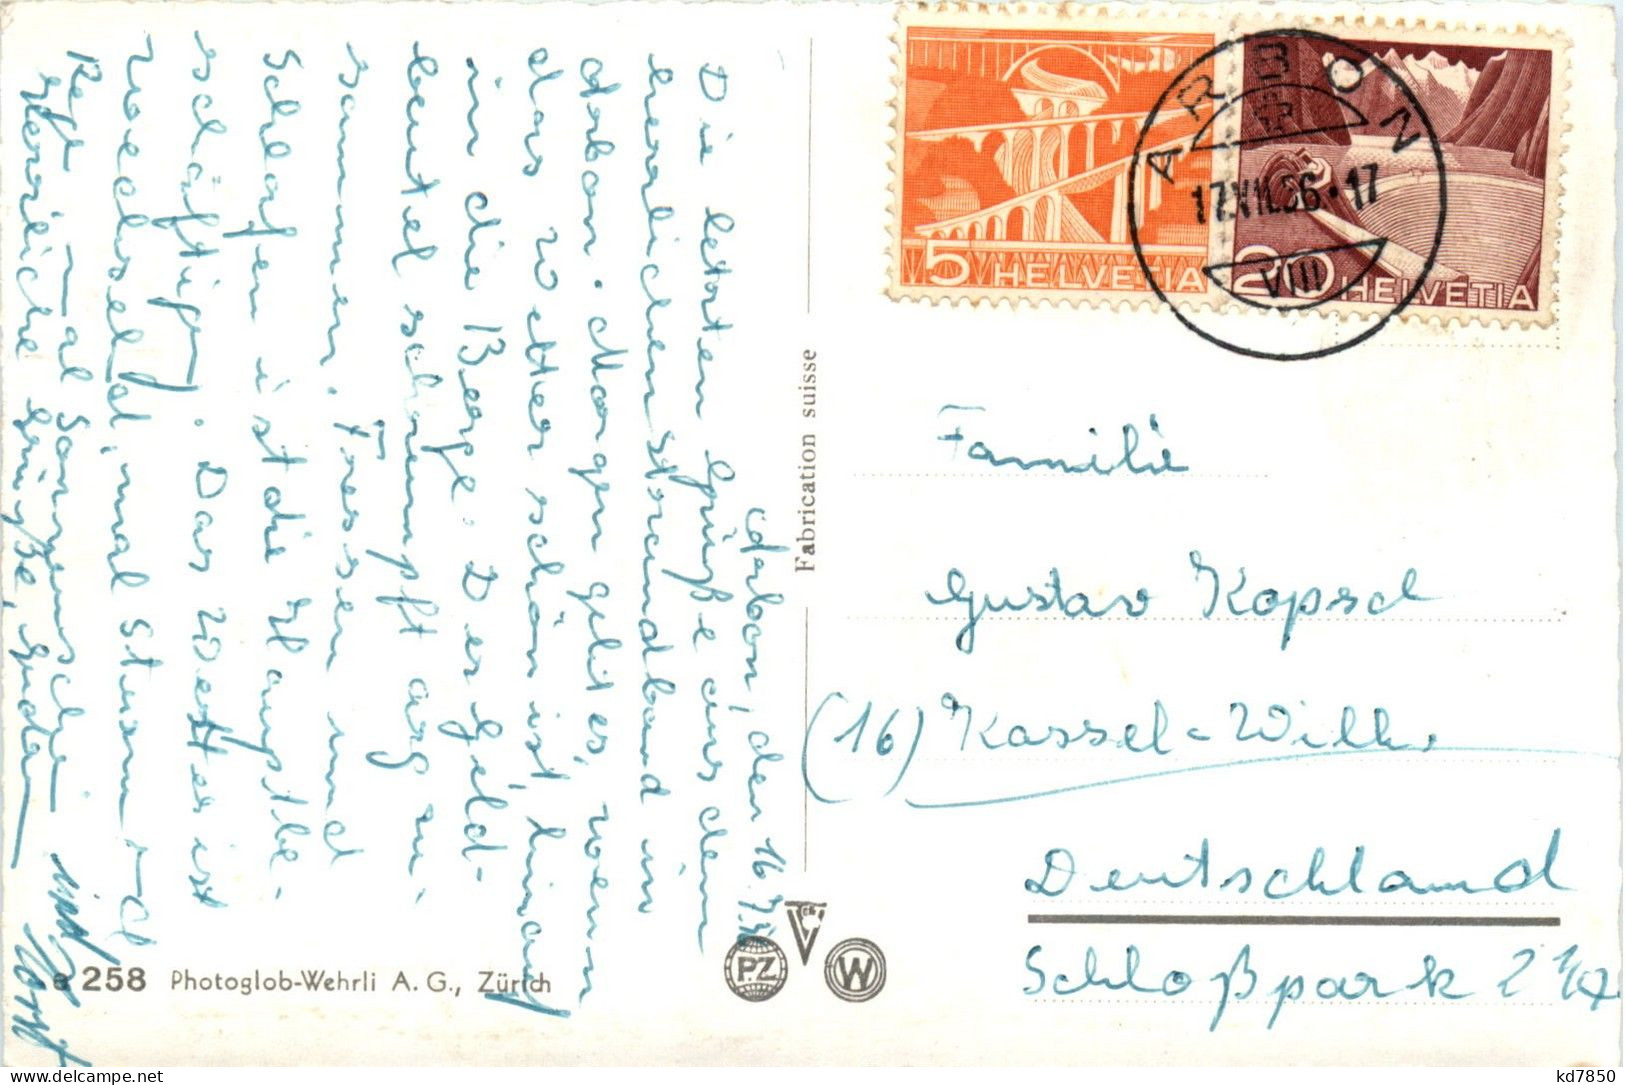 Arbon, den 16.7.56
Die letzten Grüße aus dem
herrlichen Strandbad in
Arbon. Morgen geht es, wenn
das Wetter schön ist, hinauf
in die Berge. Der Geld-
beutel schrumpft arg zu-
sammen. Fressen und
Schlafen ist die Hauptbe-
schäftigung. Das Wetter ist
wechselnd, mal Sturm und
Regen mal Sonnenschein
Herzliche Grüße,
und Horst
258 Photoglob-Wehrli A. G., Zürich
Fabrication suisse
PZ
W
5 HELVETIA
20 HELVETIA
ARBON
17.VII.56.-17
VIII
Familie
Gustav Kopsch
(16) Kassel-Wilh.
Deutschland
Schloßpark 2 1/2
kd7850